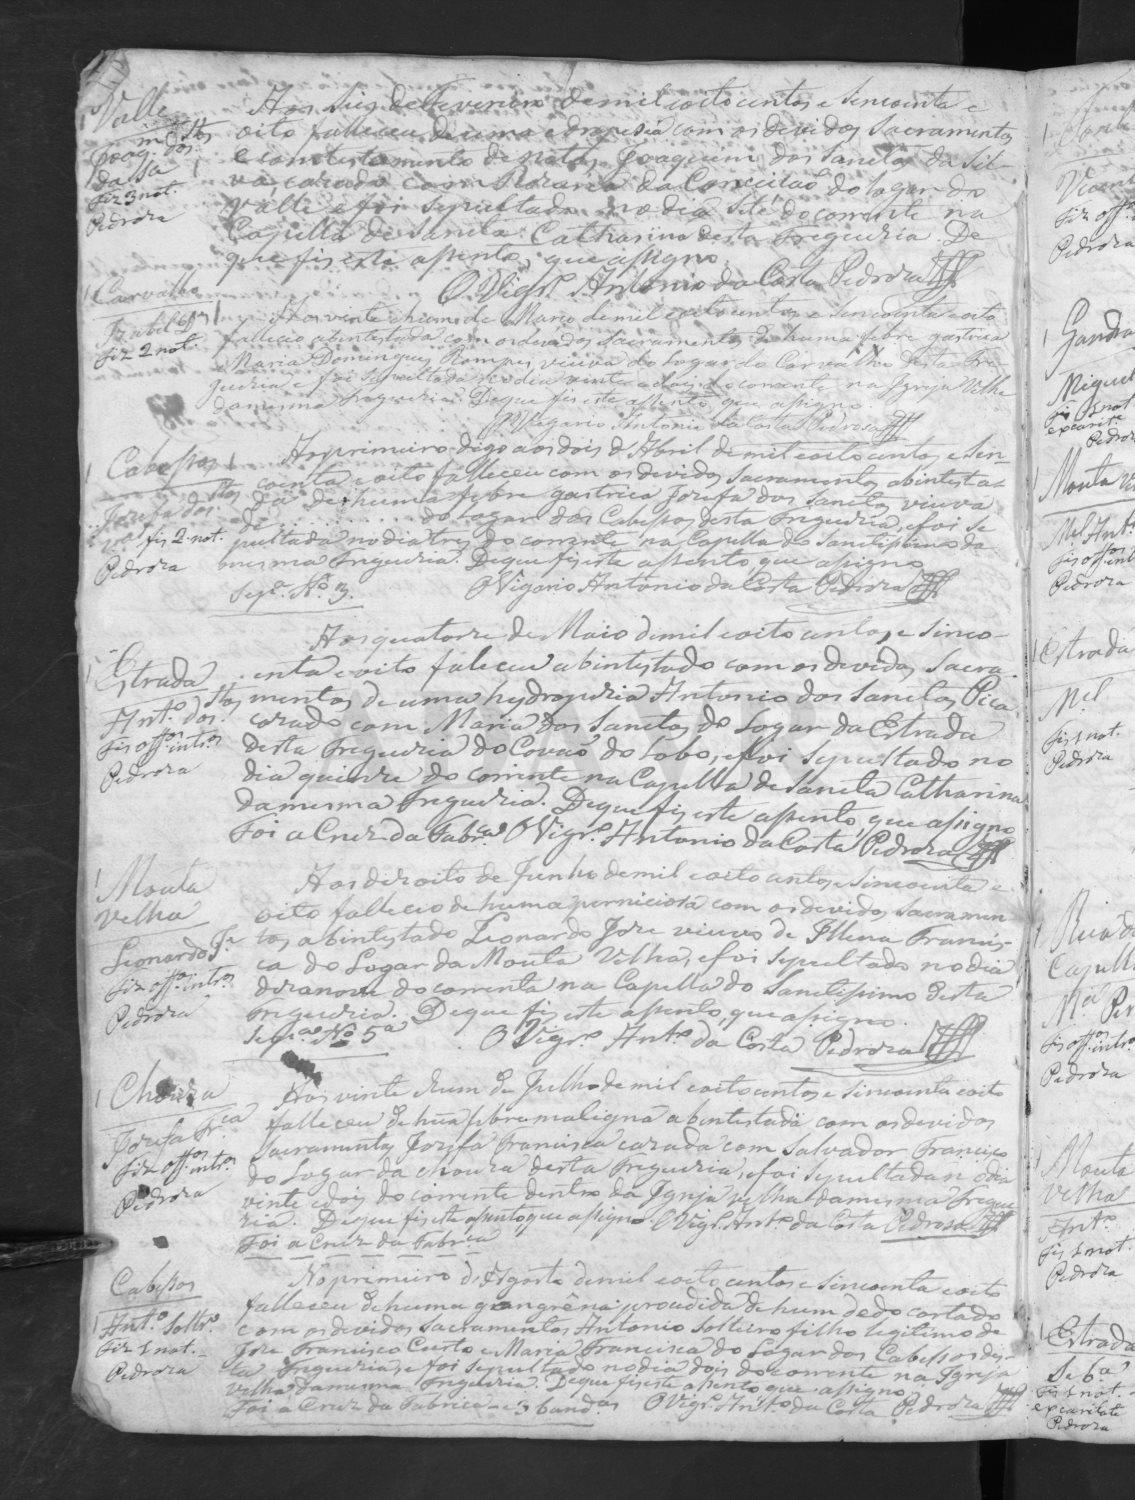 Valle
Joaq.m dos Stos
da Sa
Fiz 3 not.
Pedroza
Aos seis de Fevereiro de mil e oito centos e sincoenta e
oito falleceu de uma edropesia com os devidos Sacramentos
e com testamento de notas, Joaquim dos Santos da Sil-
va, cazado com Rozaria da Conceicaõ do lugar do
Valle e foi sepultado no dia sete do corrente na
Capella de Santa Catharina desta Freguezia. De
que fis este assento, que assigno.
O Vigr.o Antonio da Costa Pedroza
Carvalho
Fiz 2 not.
Aos vinte e hum de Março de mil e oito centos e sincoenta e oito
falleceo abintestada com os devidos sacramentos de huma febre gastrica
Maria Domingues Rompes, viuva do Lugar do Carvalho desta Fre
guezia e foi sepultada no dia vinte e dois do corrente na Igreja Velha
da mesma Freguezia. De que fis este assento que assigno.
O Vigario Antonio da Costa Pedroza
Cabessos
Jozefa dos Stos
va fis 2. not.
Pedroza
Ao primeiro digo aos dois de Abril de mil e oito centos e sin-
coenta e oito falleceu com os devidos Sacramentos abintesta-
da de huma febre gastrica Jozefa dos Santos, viuva
do lugar dos Cabessos desta Freguezia, e foi se
pultada no dia tres do corrente na Capella do Santissimo da
mesma Freguezia. De que fis este assento, que assigno
Sepa. No 3.
O Vigario Antonio da Costa Pedroza
Estrada
Anto. dos Stos
Fis offos intros
Pedroza
Aos quatorze de Maio de mil e oito centos, e sinco-
enta e oito faleceu abintestado com os devidos Sacra-
mentos de uma hydropezia Antonio dos Santos Pica
cazado com Maria dos Santos do Lugar da Estrada
desta Freguezia do Covaõ do Lobo, e foi sepultado no
dia quinze do corrente na Capella de Santa Catharina
da mesma Freguezia. De que fis este assento, que assigno
Foi a Cruz da Fabr.ca O Vigr.o Antonio da Costa Pedroza
Mouta
velha
Leonardo Je
Fiz offos intros
Pedroza
Aos dezoito de Junho de mil e oito centos, e sincoenta e
oito falleceo de huma perniciosa com os devidos Sacramen
tos abintestado Leonardo Joze viuvo de Illena Francis-
ca do Lugar da Mouta Velha, e foi sepultado no dia
dezanove do corrente na Capella do Santissimo desta
Freguezia. De que fis este assento, que assigno.
Sepa. No 5a
O Vigr.o Anto. da Costa Pedroza
Chouza
Jozefa Fr.ca
Fiz offos intros
Pedroza
Aos vinte e hum de Julho de mil e oito centos e sincoenta e oito
falleceu de huã febre maligna abintestada com os devidos
Sacramentos Jozefa Francisca cazada com Salvador Francisco
do Lugar da Chouza desta Freguezia, e foi sepultada no dia
vinte e dois do corrente dentro da Igreja velha da mesma Fregue
zia. De que fis este assento que assigno O Vigr.o Anto. da Costa Pedroza
Foi a Cruz da Fabrica
Cabessos
Anto. Soltro.
Fiz 1 not.
Pedroza
No primeiro de Agosto de mil e oito centos e sincoenta e oito
falleceu de huma grangrêna procedida de hum dedo cortado
com os devidos Sacramentos Antonio Solteiro filho legitimo de
Joze Francisco Curto e Maria Francisca do Lugar dos Cabessos des-
ta Freguezia, e foi sepultado no dia dois do corrente na Igreja
velha da mesma Freguezia. De que fis este assento, que assigno
Foi a Cruz da Fabrica e 3 band.as O Vigr.o Anto. da Costa Pedroza
Pedroza
Gandra
Miguel
Pedroza
Mouta
Pedroza
Estrada
Mel
Fis 1 not.
Pedroza
Pedroza
Mouta
Velha
Anto.
Fis 1 not.
Pedroza
Estrada
Fis 1 not.
ex caritate
Pedroza